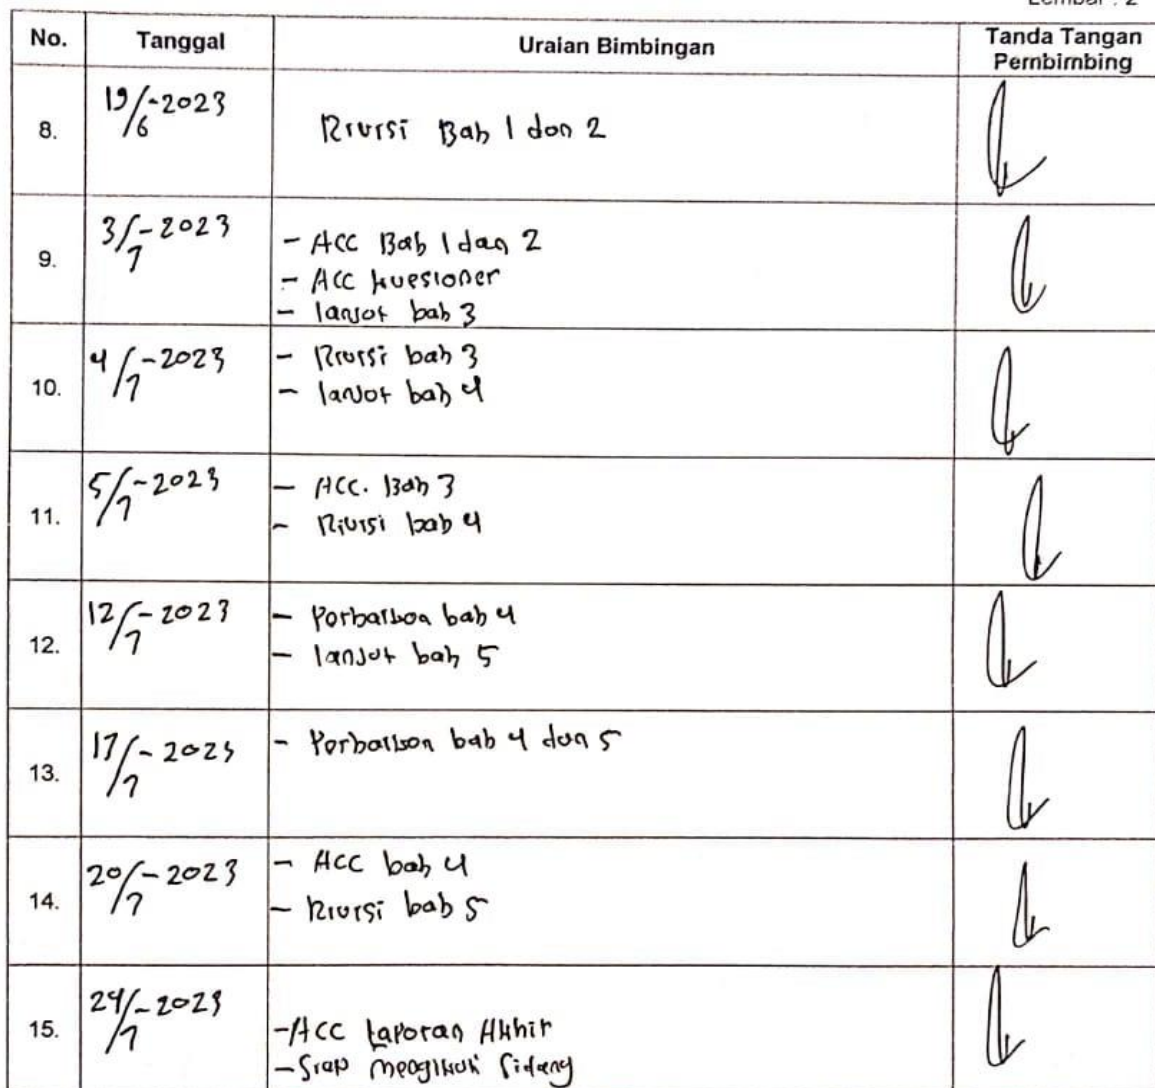 Lembar : 2
No. Tanggal Uraian Bimbingan Tanda Tangan
Pembimbing
8. 19/6-2023 Revisi Bab 1 dan 2
9. 3/7-2023 - ACC Bab 1 dan 2
- ACC kuesioner
- lanjut bab 3
10. 4/7-2023 - Revisi bab 3
- lanjut bab 4
11. 5/7-2023 - ACC. Bab 3
- Revisi bab 4
12. 12/7-2023 - Perbaikan bab 4
- lanjut bab 5
13. 17/7-2023 - Perbaikan bab 4 dan 5
14. 20/7-2023 - ACC bab 4
- Revisi bab 5
15. 24/7-2023 - ACC Laporan Akhir
- Siap mengikuti Sidang